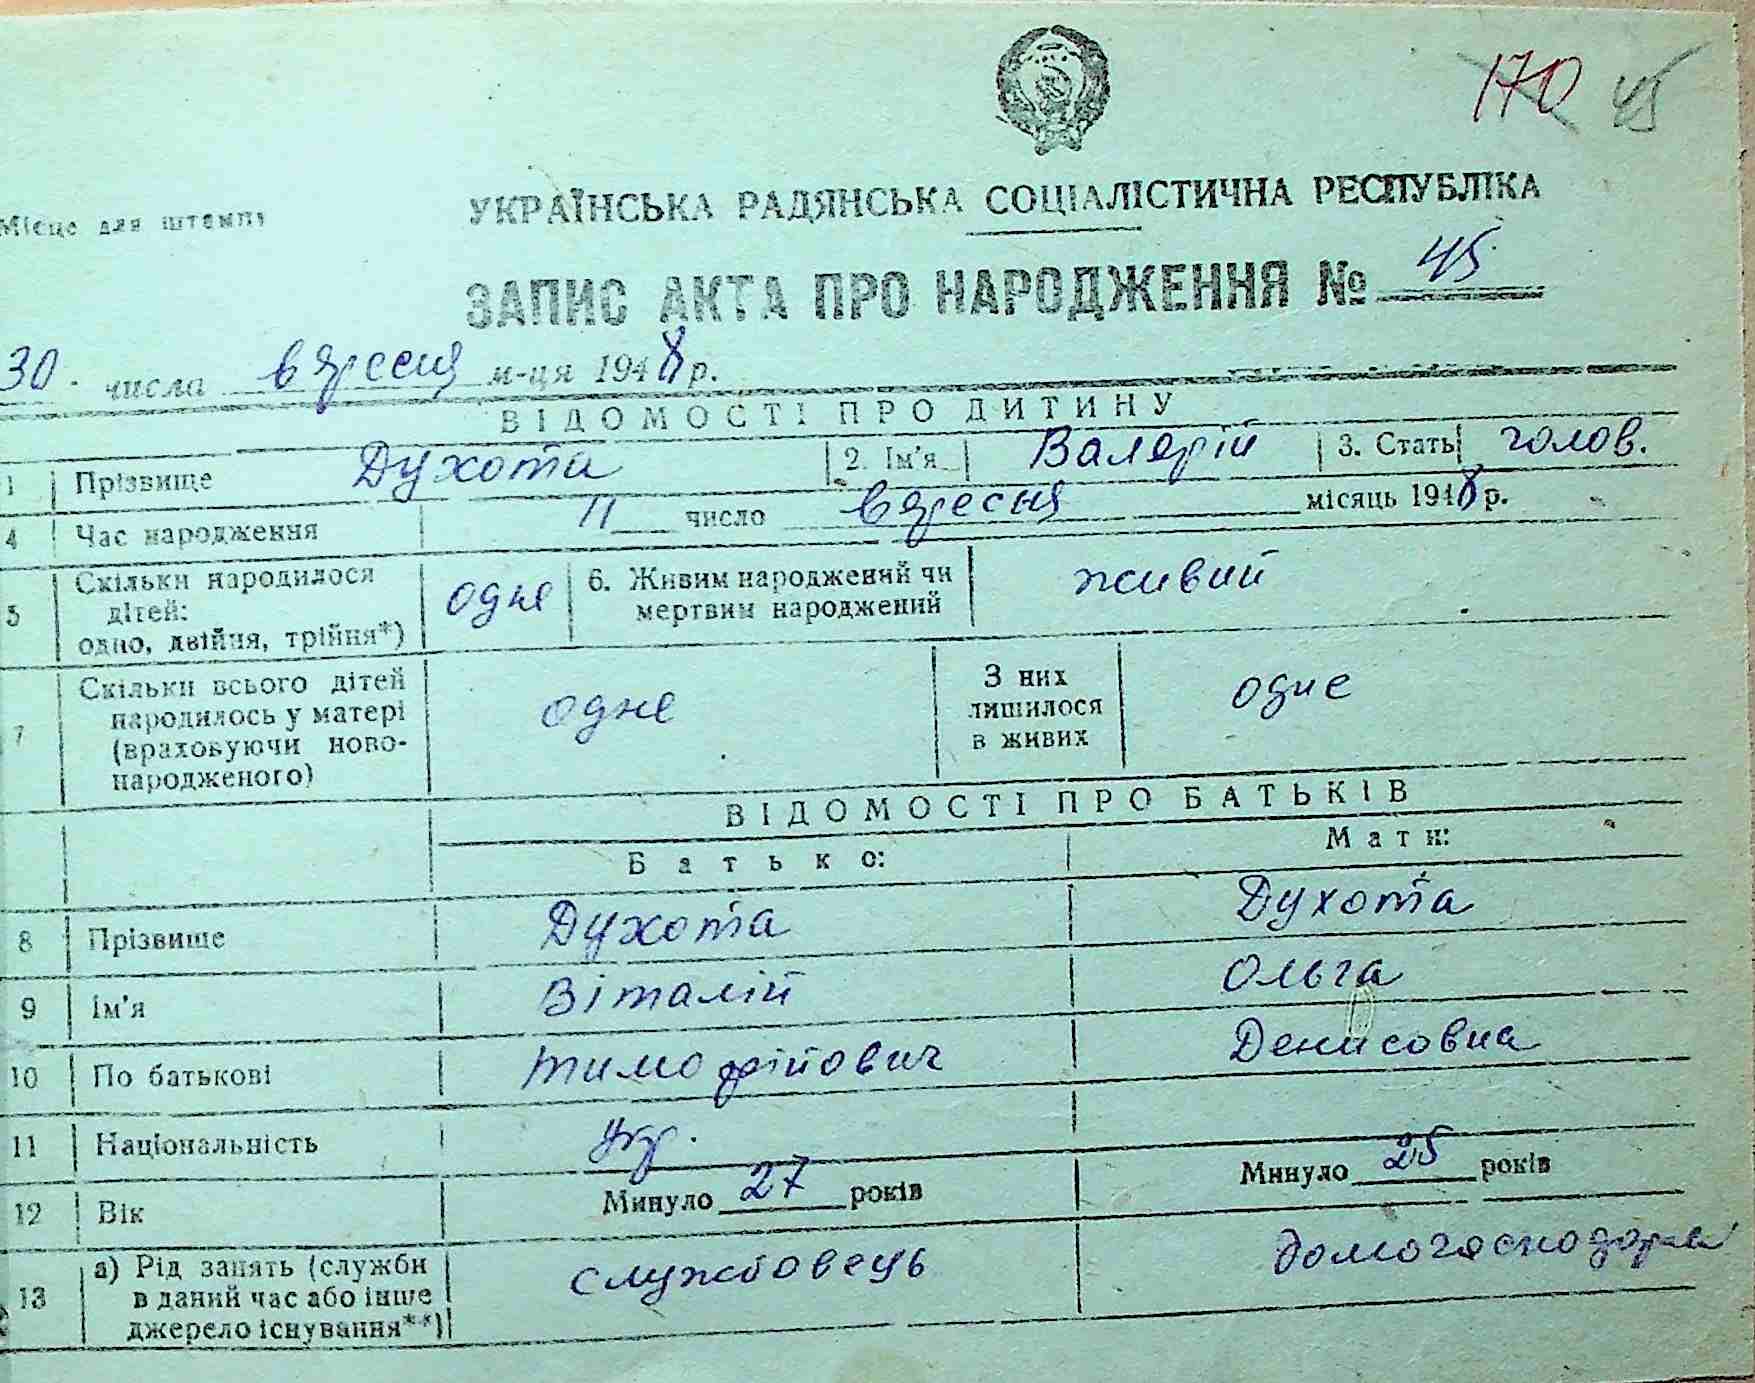 170 45
Місце для штампу
УКРАЇНСЬКА РАДЯНСЬКА СОЦІАЛІСТИЧНА РЕСПУБЛІКА
ЗАПИС АКТА ПРО НАРОДЖЕННЯ № 45
30 числа вересня м-ця 1948 р.
ВІДОМОСТІ ПРО ДИТИНУ
1 Прізвище Духота 2. Ім'я Валерій 3. Стать голов.
4 Час народження 11 число вересня місяць 1948 р.
5 Скільки народилося
дітей:
одно, двійня, трійня*) одне 6. Живим народжений чи
мертвим народжений живий
7 Скільки всього дітей
народилось у матері
(враховуючи ново-
народженого) одне З них
лишилося
в живих одне
ВІДОМОСТІ ПРО БАТЬКІВ
Батько: Мати:
8 Прізвище Духота Духота
9 Ім'я Віталій Ольга
10 По батькові Тимофійович Денисовна
11 Національність укр.
12 Вік Минуло 27 років Минуло 25 років
13 а) Рід занять (служби
в даний час або інше
джерело існування**) службовець